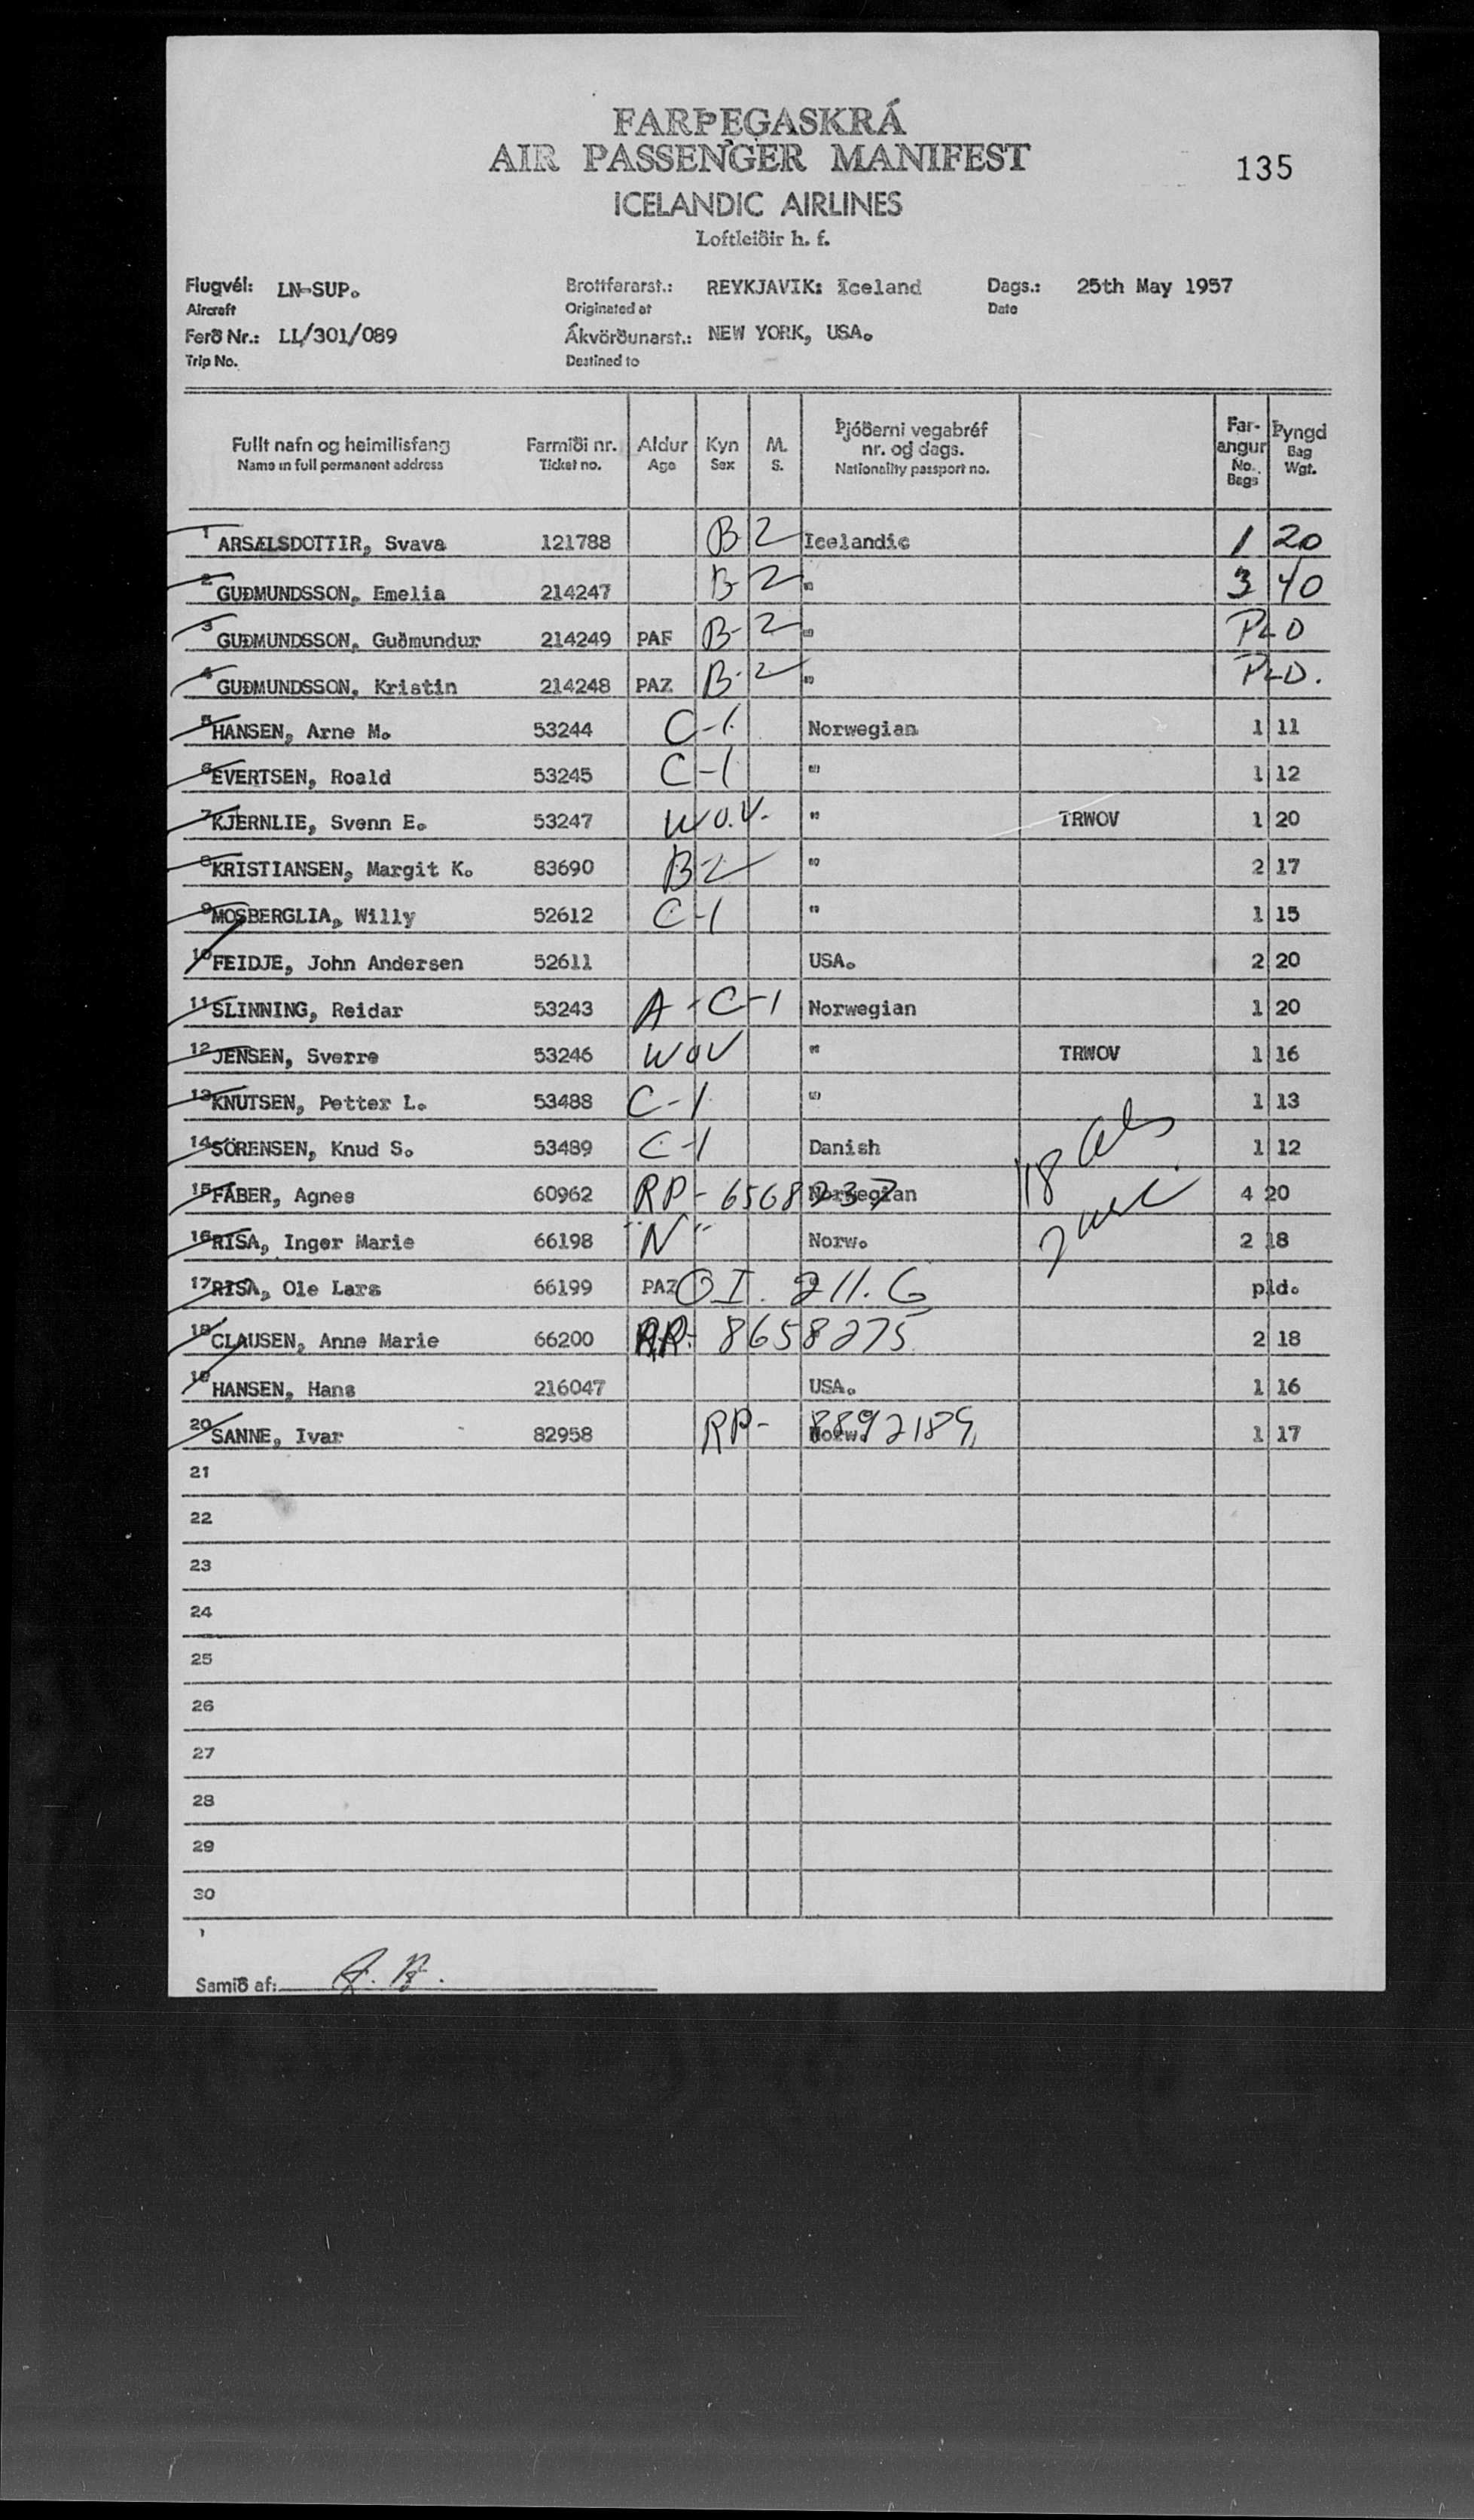 FARÞEGASKRÁ
AIR PASSENGER MANIFEST
135
ICELANDIC AIRLINES
Loftleiðir h. f.
Flugvél: LN-SUP. Brottfararst.: REYKJAVIK: Iceland Dags.: 25th May 1957
Aircraft Originated at Date
Ferð Nr.: LL/301/089 Ákvörðunarst.: NEW YORK, USA.
Trip No. Destined to
Fullt nafn og heimilisfang Farmiði nr. Aldur Kyn M. Þjóðerni vegabréf nr. og dags. Far-angur Þyngd
Name in full permanent address Ticket no. Age Sex S. Nationality passport no. No. Bags Bag Wgt.
1 ARSÆLSDOTTIR, Svava 121788 B 2 Icelandic 1 20
2 GUÐMUNDSSON, Emelia 214247 B-2 " 3 40
3 GUÐMUNDSSON, Guðmundur 214249 PAF B-2 " PLD
4 GUÐMUNDSSON, Kristin 214248 PAZ B-2 " PLD.
5 HANSEN, Arne M. 53244 C-1 Norwegian 1 11
6 EVERTSEN, Roald 53245 C-1 " 1 12
7 KJERNLIE, Svenn E. 53247 W.O.V. " TRWOV 1 20
8 KRISTIANSEN, Margit K. 83690 B2 " 2 17
9 MOSBERGLIA, Willy 52612 C-1 " 1 15
10 FEIDJE, John Andersen 52611 USA. 2 20
11 SLINNING, Reidar 53243 A-C-1 Norwegian 1 20
12 JENSEN, Sverre 53246 WOV " TRWOV 1 16
13 KNUTSEN, Petter L. 53488 C-1 " 1 13
14 SÖRENSEN, Knud S. 53489 C-1 Danish 1 12
15 FABER, Agnes 60962 RP-6568237 Norwegian 4 20
18
16 RISA, Inger Marie 66198 "N" Norw. 2 18
17 RISA, Ole Lars 66199 PAZ OI. 211.G pld.
18 CLAUSEN, Anne Marie 66200 RP- 8658275 2 18
19 HANSEN, Hans 216047 USA. 1 16
20 SANNE, Ivar 82958 RP- 8892189 Norw. 1 17
21
22
23
24
25
26
27
28
29
30
Samið af: